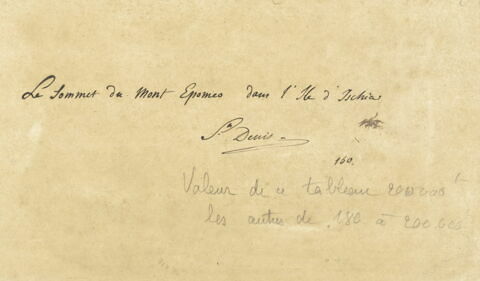 Le Sommet du Mont Epomeo dans l'Ile d'Ischia
Sn Denis
160.
Valeur de ce tableau 200 000 f
les autres de 180 à 200.000